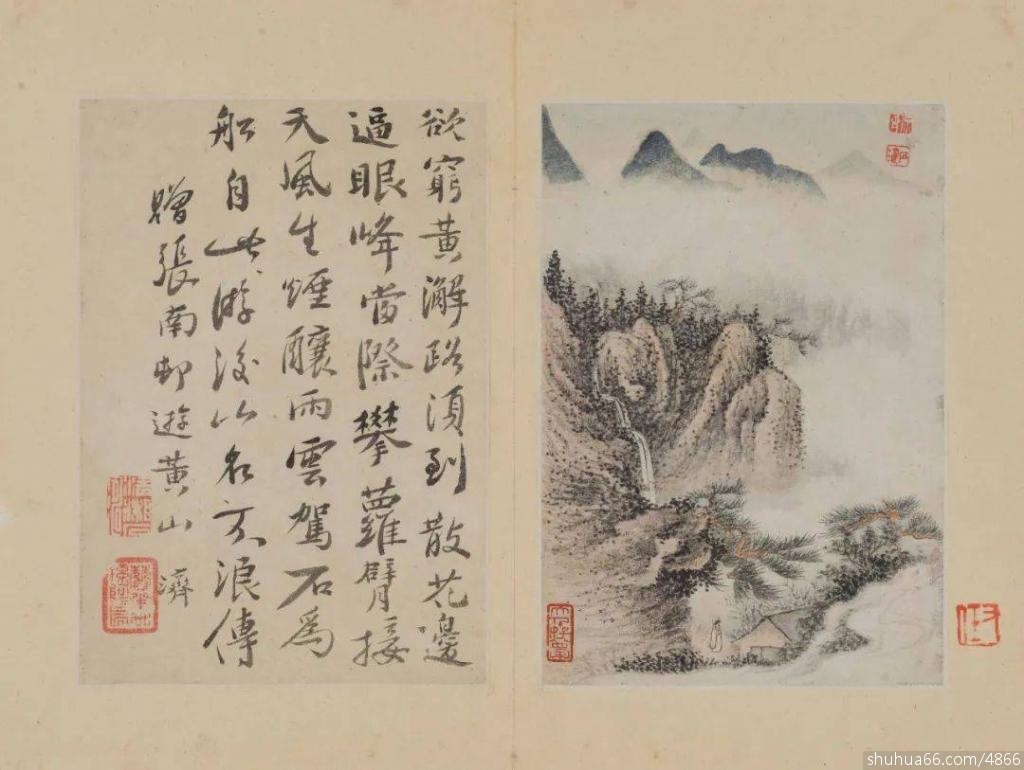 欲窮黃澥路須到散花邊
逼眼峰當際攀蘿臂接
天風生煙釀雨雲駕石為
船自此游後以名不浪傳
贈張南邨遊黃山
濟
shuhua66.com/4866